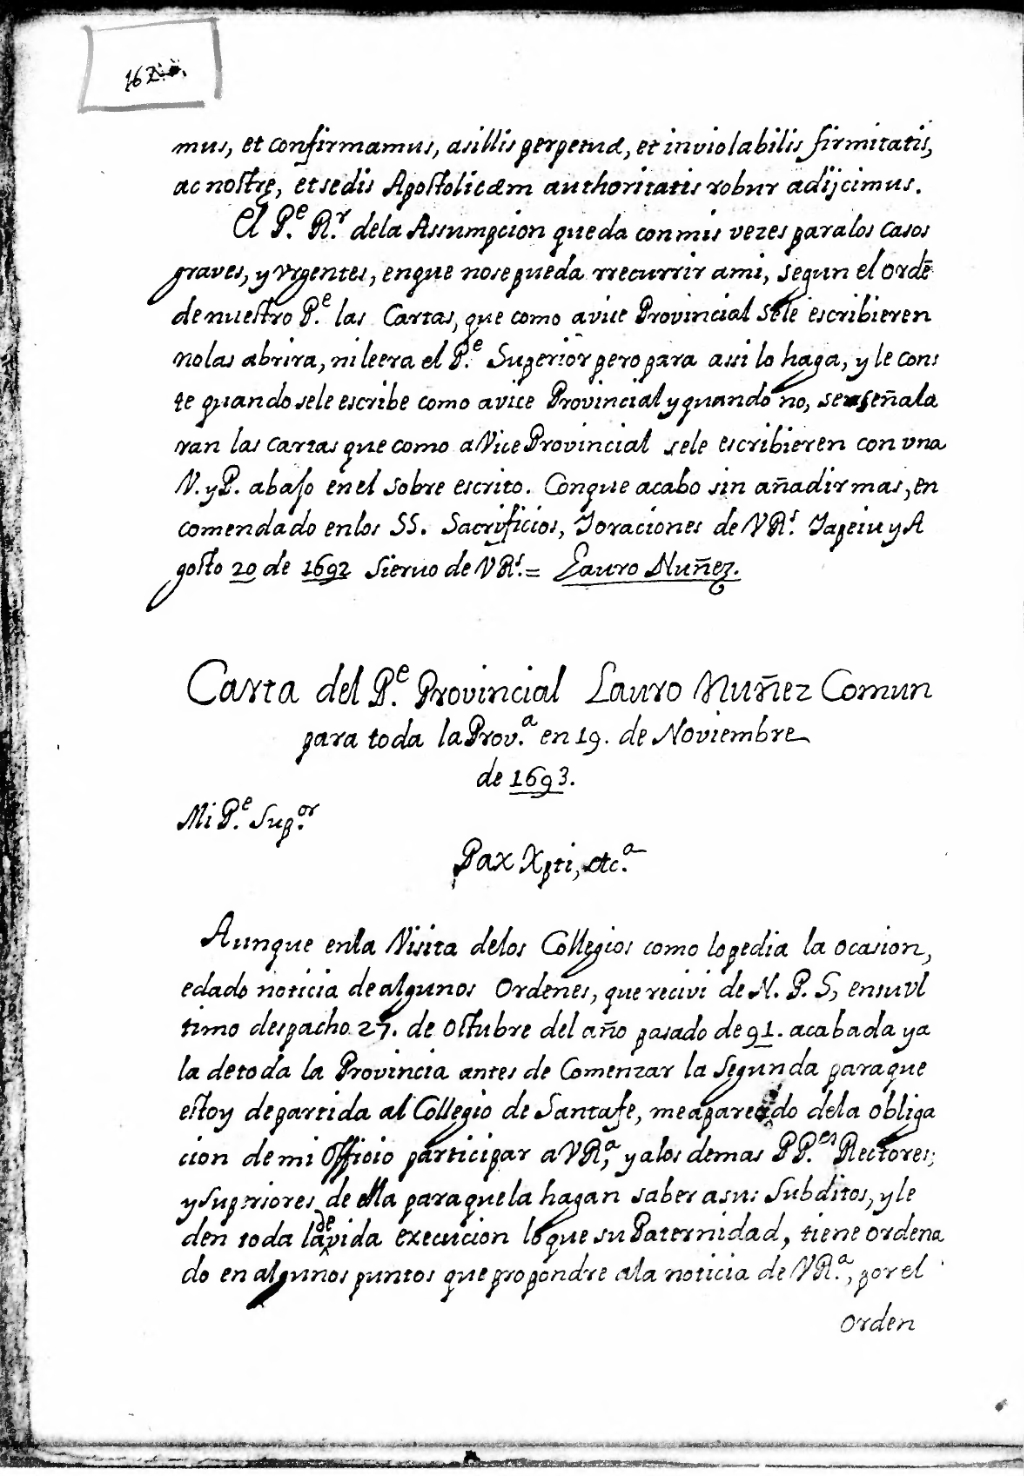 mus, et confirmamus, asillis perpetuæ, et inviolabilis firmitatis,
ac nostrę, et sedis Apostolicæm authoritatis robur adijcimus.
El P.ᵉ R.ʳ dela Assumpcion queda con mis vezes para los casos
graves, y vrgentes, enque nose pueda rrecurrir ami, segun el ordẽ
de nuestro P.ᵉ las Cartas, que como avice Provincial se le escribieren
no las abrira, ni leera el P.ᵉ Superior pero para assi lo haga, y le cons
te quando sele escribe como avice Provincial y quando no, se señala
ran las cartas que como a Vice Provincial sele escribieren con vna
V. y P. abajo en el sobre escrito. Conque acabo sin añadir mas, en
comendado enlos SS. Sacrificios, Ioraciones de VRˢ. Iapeiu y A
gosto 20 de 1692 Sieruo de VRˢ. = Lauro Nuñez.
Carta del P.ᵉ Provincial Lauro Nuñez Comun
para toda la Prov.ᵃ en 19. de Noviembre
de 1693.
Mi P.ᵉ Sup.ᵒʳ
Pax Xpti, etc.ᵃ
Aunque enla Visita delos Collegios como lo pedia la ocasion,
edado noticia de algunos Ordenes, que recivi de N. P. S, ensuvl
timo despacho 27. de Octubre del año pasado de 91. acabada ya
la detoda la Provincia antes de Comenzar la Segunda paraque
estoy departida al Collegio de Santafe, me aparecido dela obliga
cion de mi Officio participar a VR.ᵃ, y alos demas PP.ᵉˢ Rectores,
y superiores de ella paraque la hagan saber asus Subditos, y le
den toda la devida execucion lo que su Paternidad, tiene ordena
do en algunos puntos que propondre ala noticia de VR.ᵃ, por el
orden